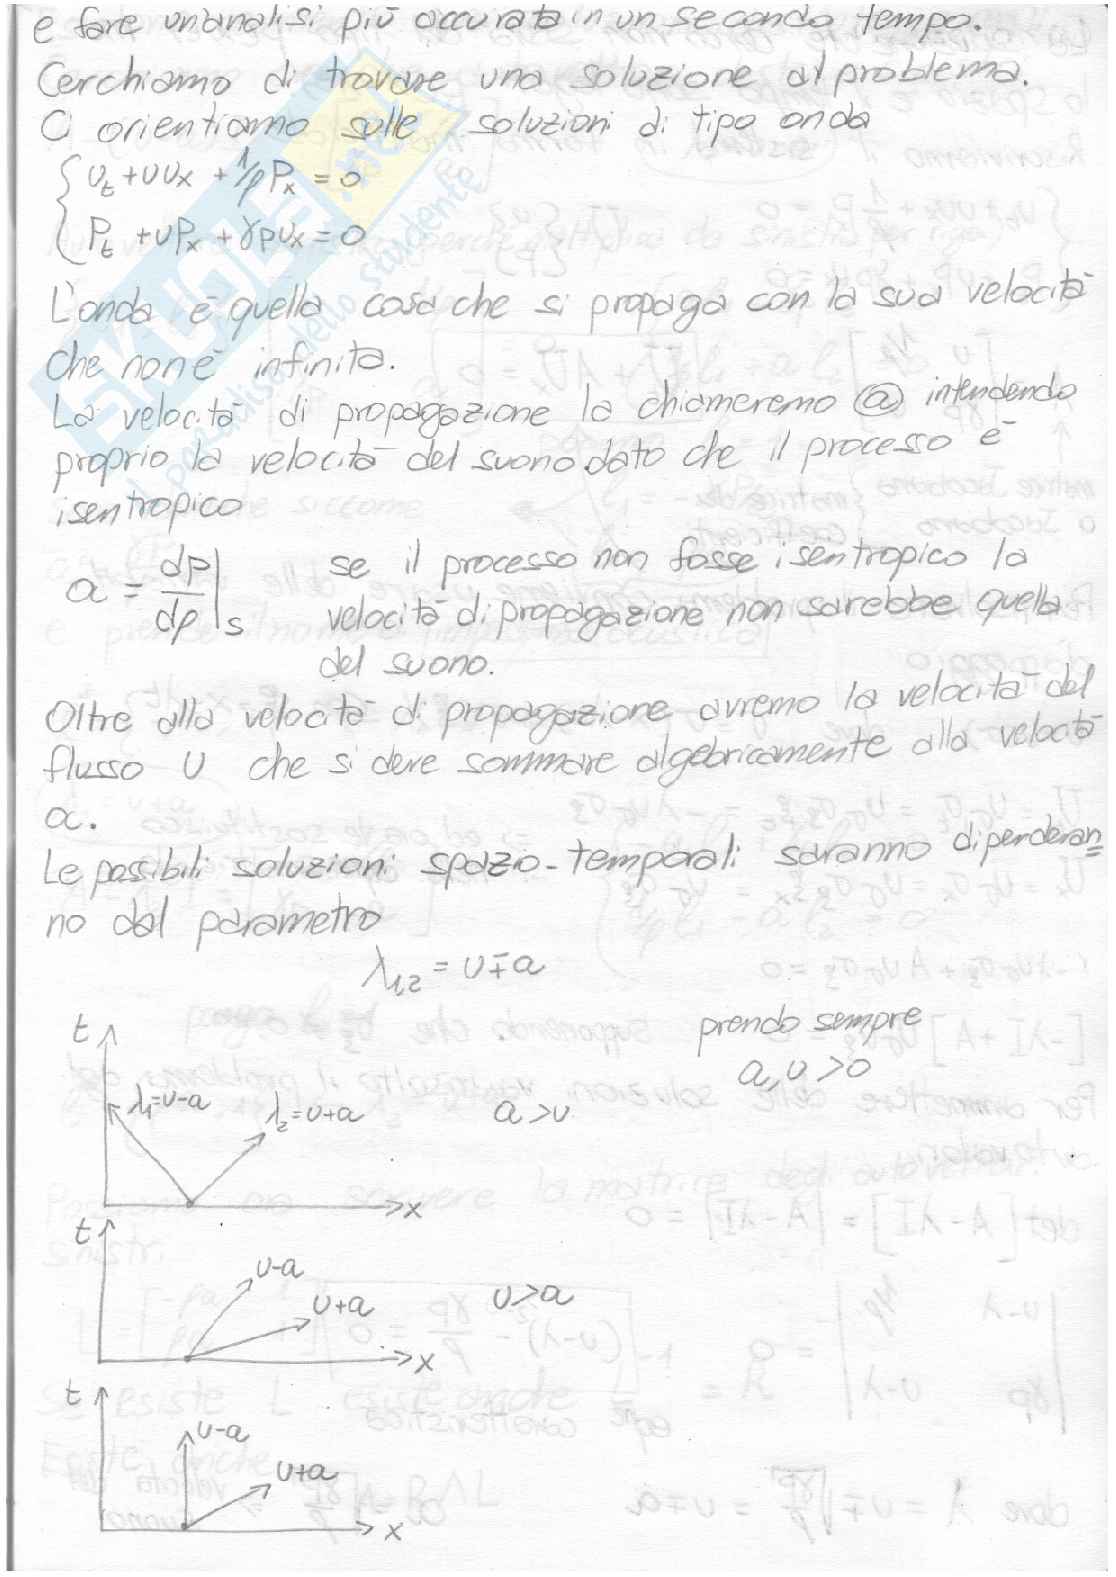 e fare un'analisi più accurata in un secondo tempo.
Cerchiamo di trovare una soluzione al problema.
Ci orientiamo sulle soluzioni di tipo onda
{ u_t + u u_x + 1/ρ P_x = 0
{ P_t + u P_x + γ p u_x = 0
L'onda è quella cosa che si propaga con la sua velocità
che non è infinita.
La velocità di propagazione la chiameremo @ intendendo
proprio la velocità del suono dato che il processo è
isentropico
a = dp/dρ |_s se il processo non fosse isentropico la
velocità di propagazione non sarebbe quella
del suono.
Oltre alla velocità di propagazione avremo la velocità del
flusso U che si deve sommare algebricamente alla velocità
a.
Le possibili soluzioni spazio-temporali saranno dipenderan=
no dal parametro
λ_1,2 = u∓a
prendo sempre
a, u > 0
t
λ_1=u-a
λ_2=u+a
a>u
x
t
u-a
u+a
u>a
x
t
u-a
u+a
x
SKUOLA.net
il paradiso dello studente